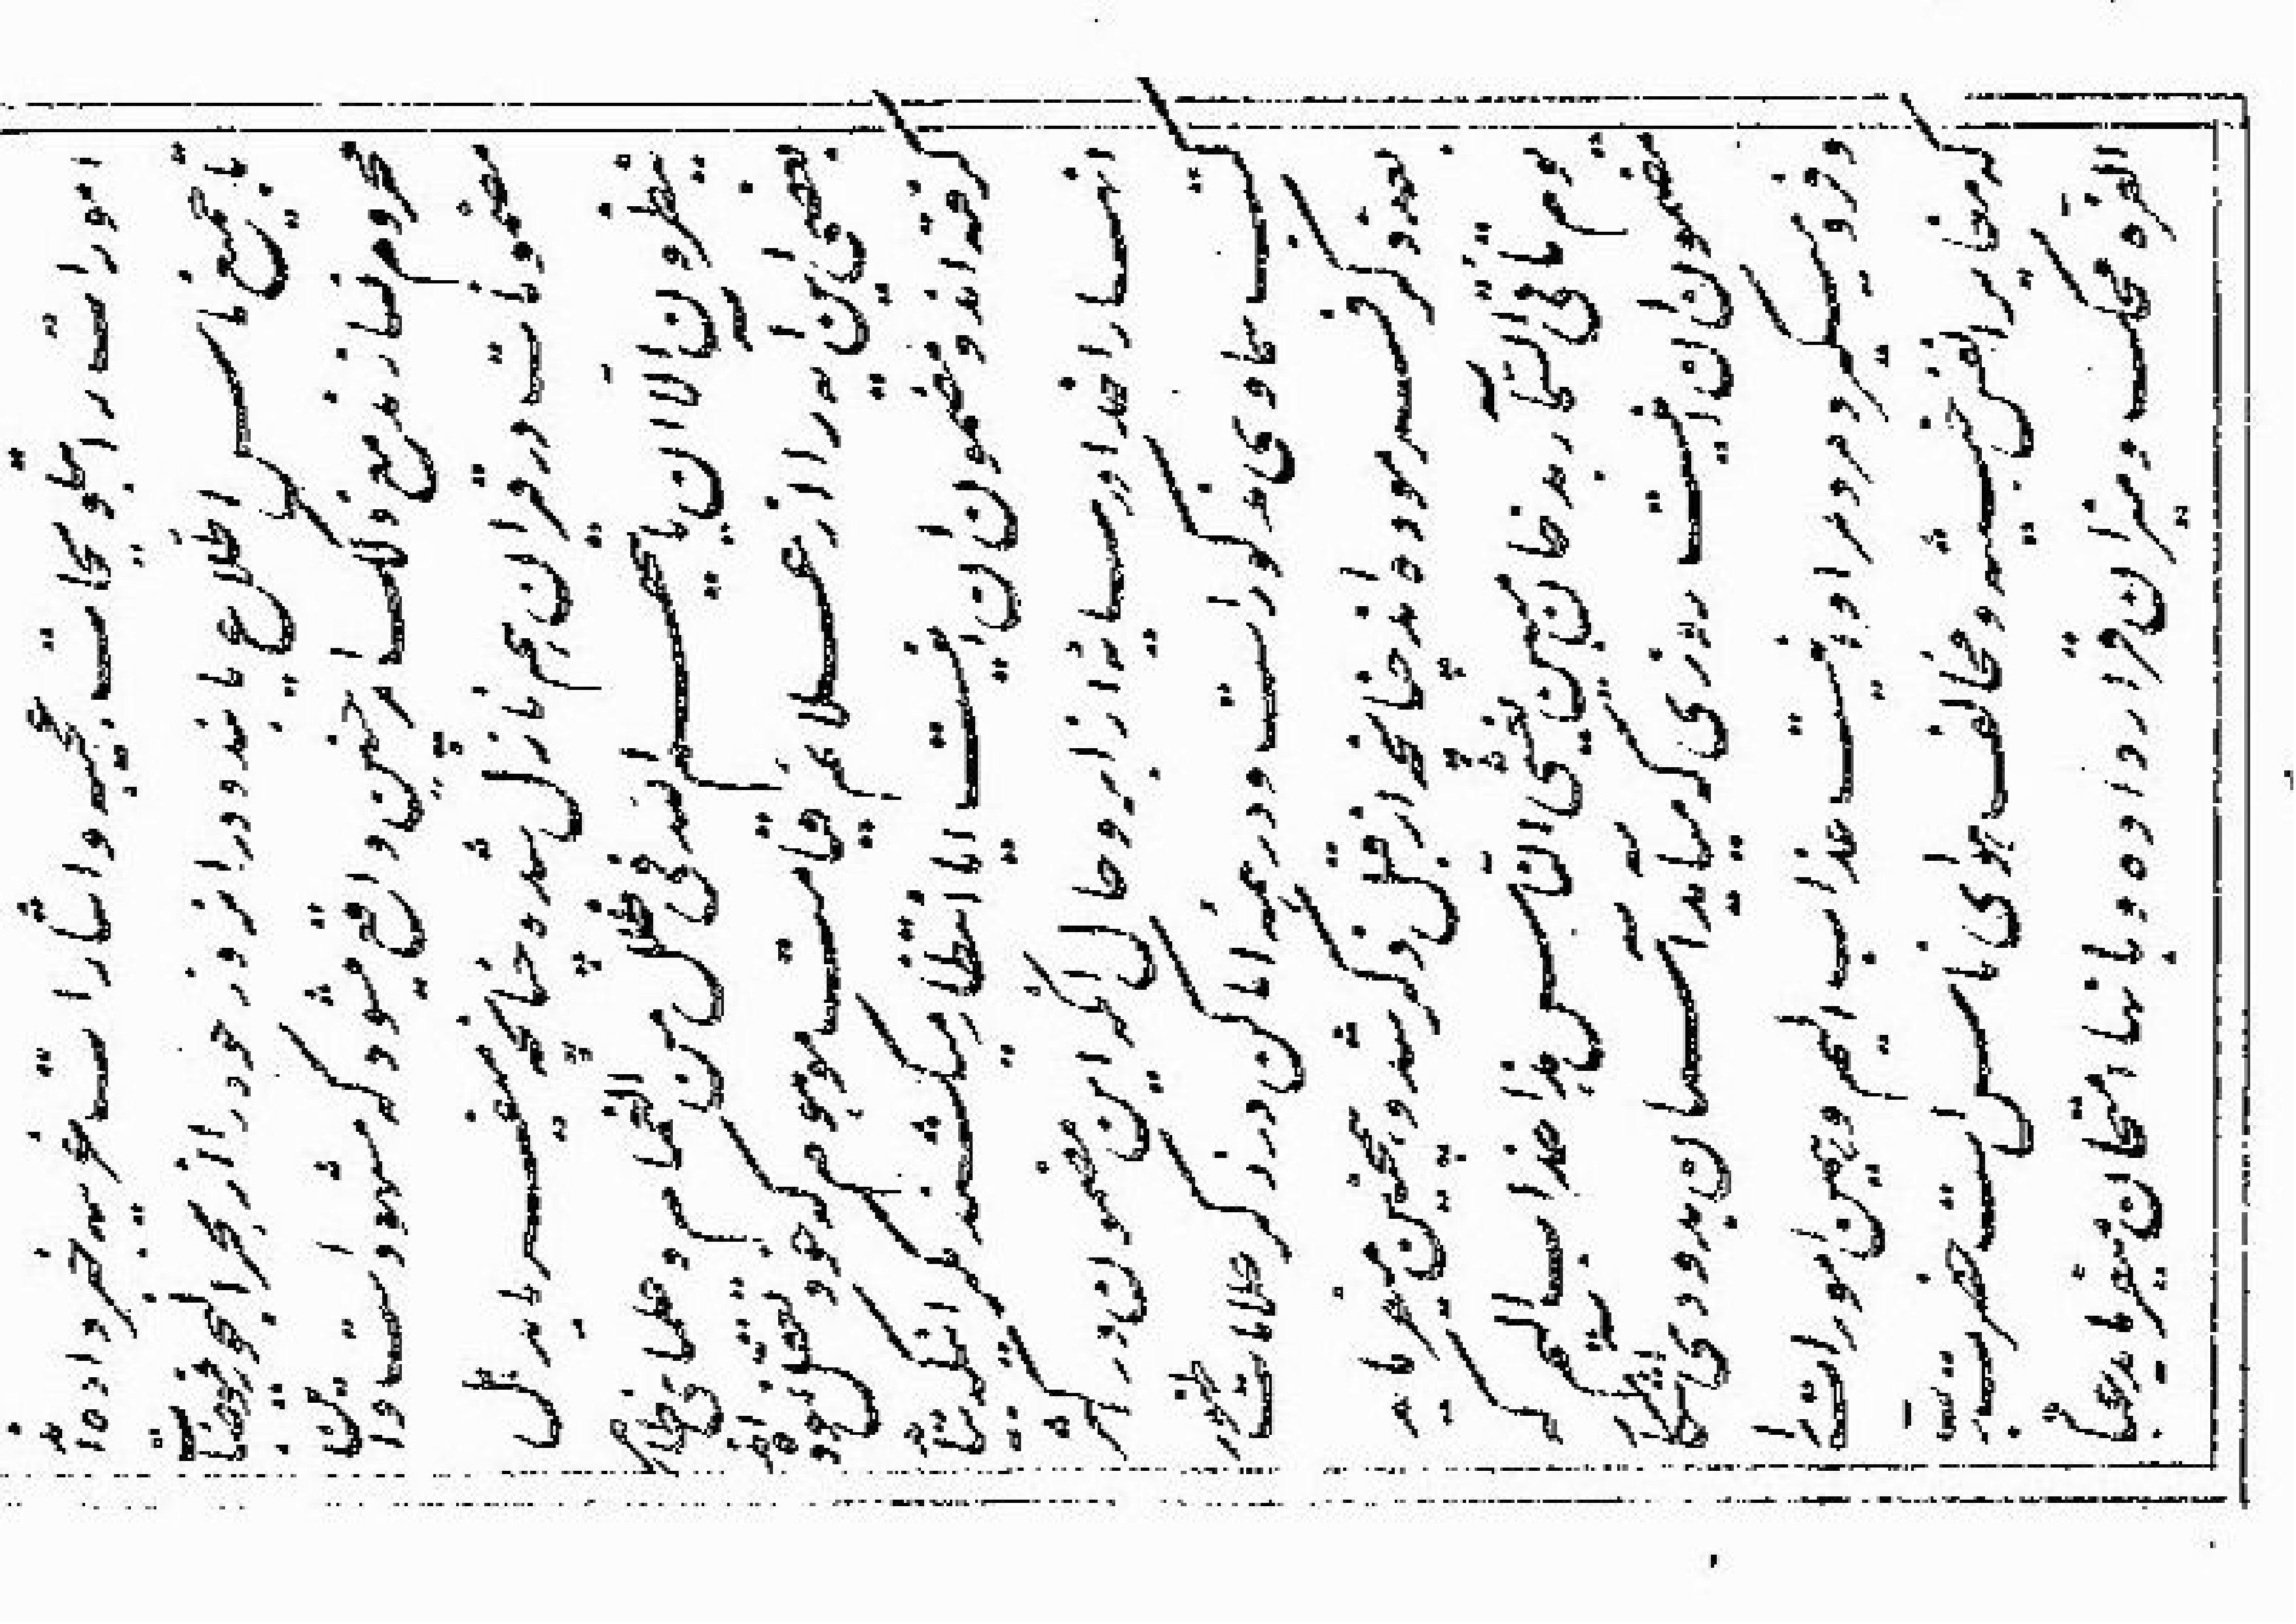 تا جمیع ناس اطلاع یابند و در امروز خود را از بحر البحور
محروم نسازند و ممنوع واقع نشود که مشهود است و این
مضمونات در فرقان هم نازل شده چنانچه میفرماید هل
ینظرون الا ان یاتیهم الله فی ظلل من الغمام و علمای ظاهر
بعضی این آیه را از علائم قیامت موهوم که خود تعقل نموده اند
گرفته اند و مضمون آن اینست آیا انتظار میکشند مگر اینکه بیاید
آنها را خدا در سایه از ابر و حال آنکه این مضمون در اکثر
کتب سماوی مذکور است و در همه اماکن در ذکر علامات ظهور
بعد ذکر فرموده اند چنانچه از قبل ذکر شد و همچنین میفرماید
یوم تاتی السماء بدخان مبین یغشی الناس هذا عذاب الیم که
مضمون آن اینست روزی که میاید آسمان بدودی آشکار
و فرو میگیرد مردم را و اینست عذاب الیم و همین امورات را
که مغایر انفس خبیثه و مخالف هوای ناس است حضرت رب
العزه محک و میزان قرار داده و بانها امتحان میفرماید